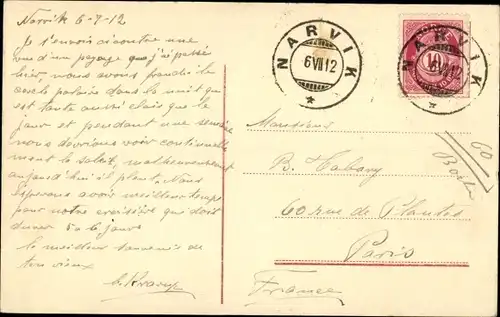 Narvik 6-7-12
Je t'envoie ci contre une
vue d'un paysage que j'ai passé
hier, nous avons franchi le
cercle polaire dans la nuit qui
est toute aussi claire que le
jour et pendant une semaine
nous devrions voir continuelle
ment le soleil, malheureusement
aujourd'hui il pleut. Nous
espérons avoir meilleur temps
pour notre croisière qui doit
durer 5 à 6 jours
le meilleur souvenir de
ton vieux
NARVIK
6 VII 12
NARVIK
VII 12
10
Monsieur
R.
60 rue de Plantes
Paris
France
60